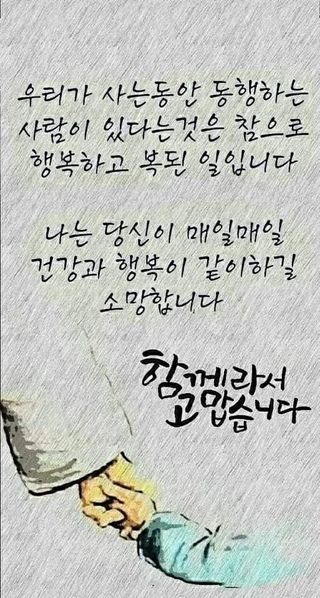 우리가 사는동안 동행하는
사람이 있다는것은 참으로
행복하고 복된 일입니다
나는 당신이 매일매일
건강과 행복이 같이하길
소망합니다
함께라서
고맙습니다